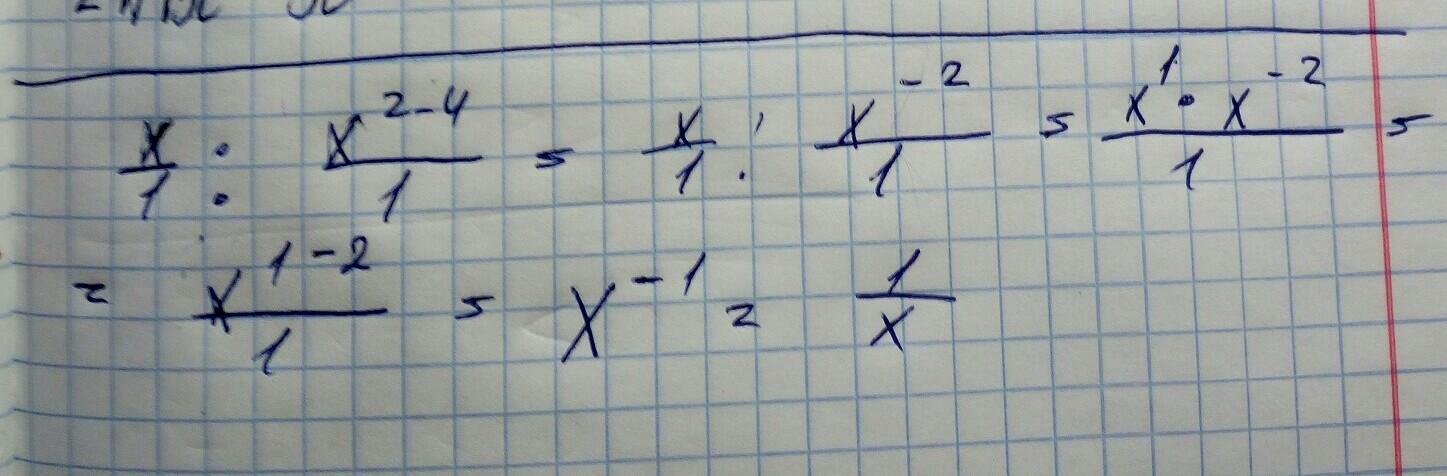 x/1 : x^(2-4)/1 = x/1 : x^(-2)/1 = (x^1 · x^(-2))/1 =
= x^(1-2)/1 = x^(-1) = 1/x